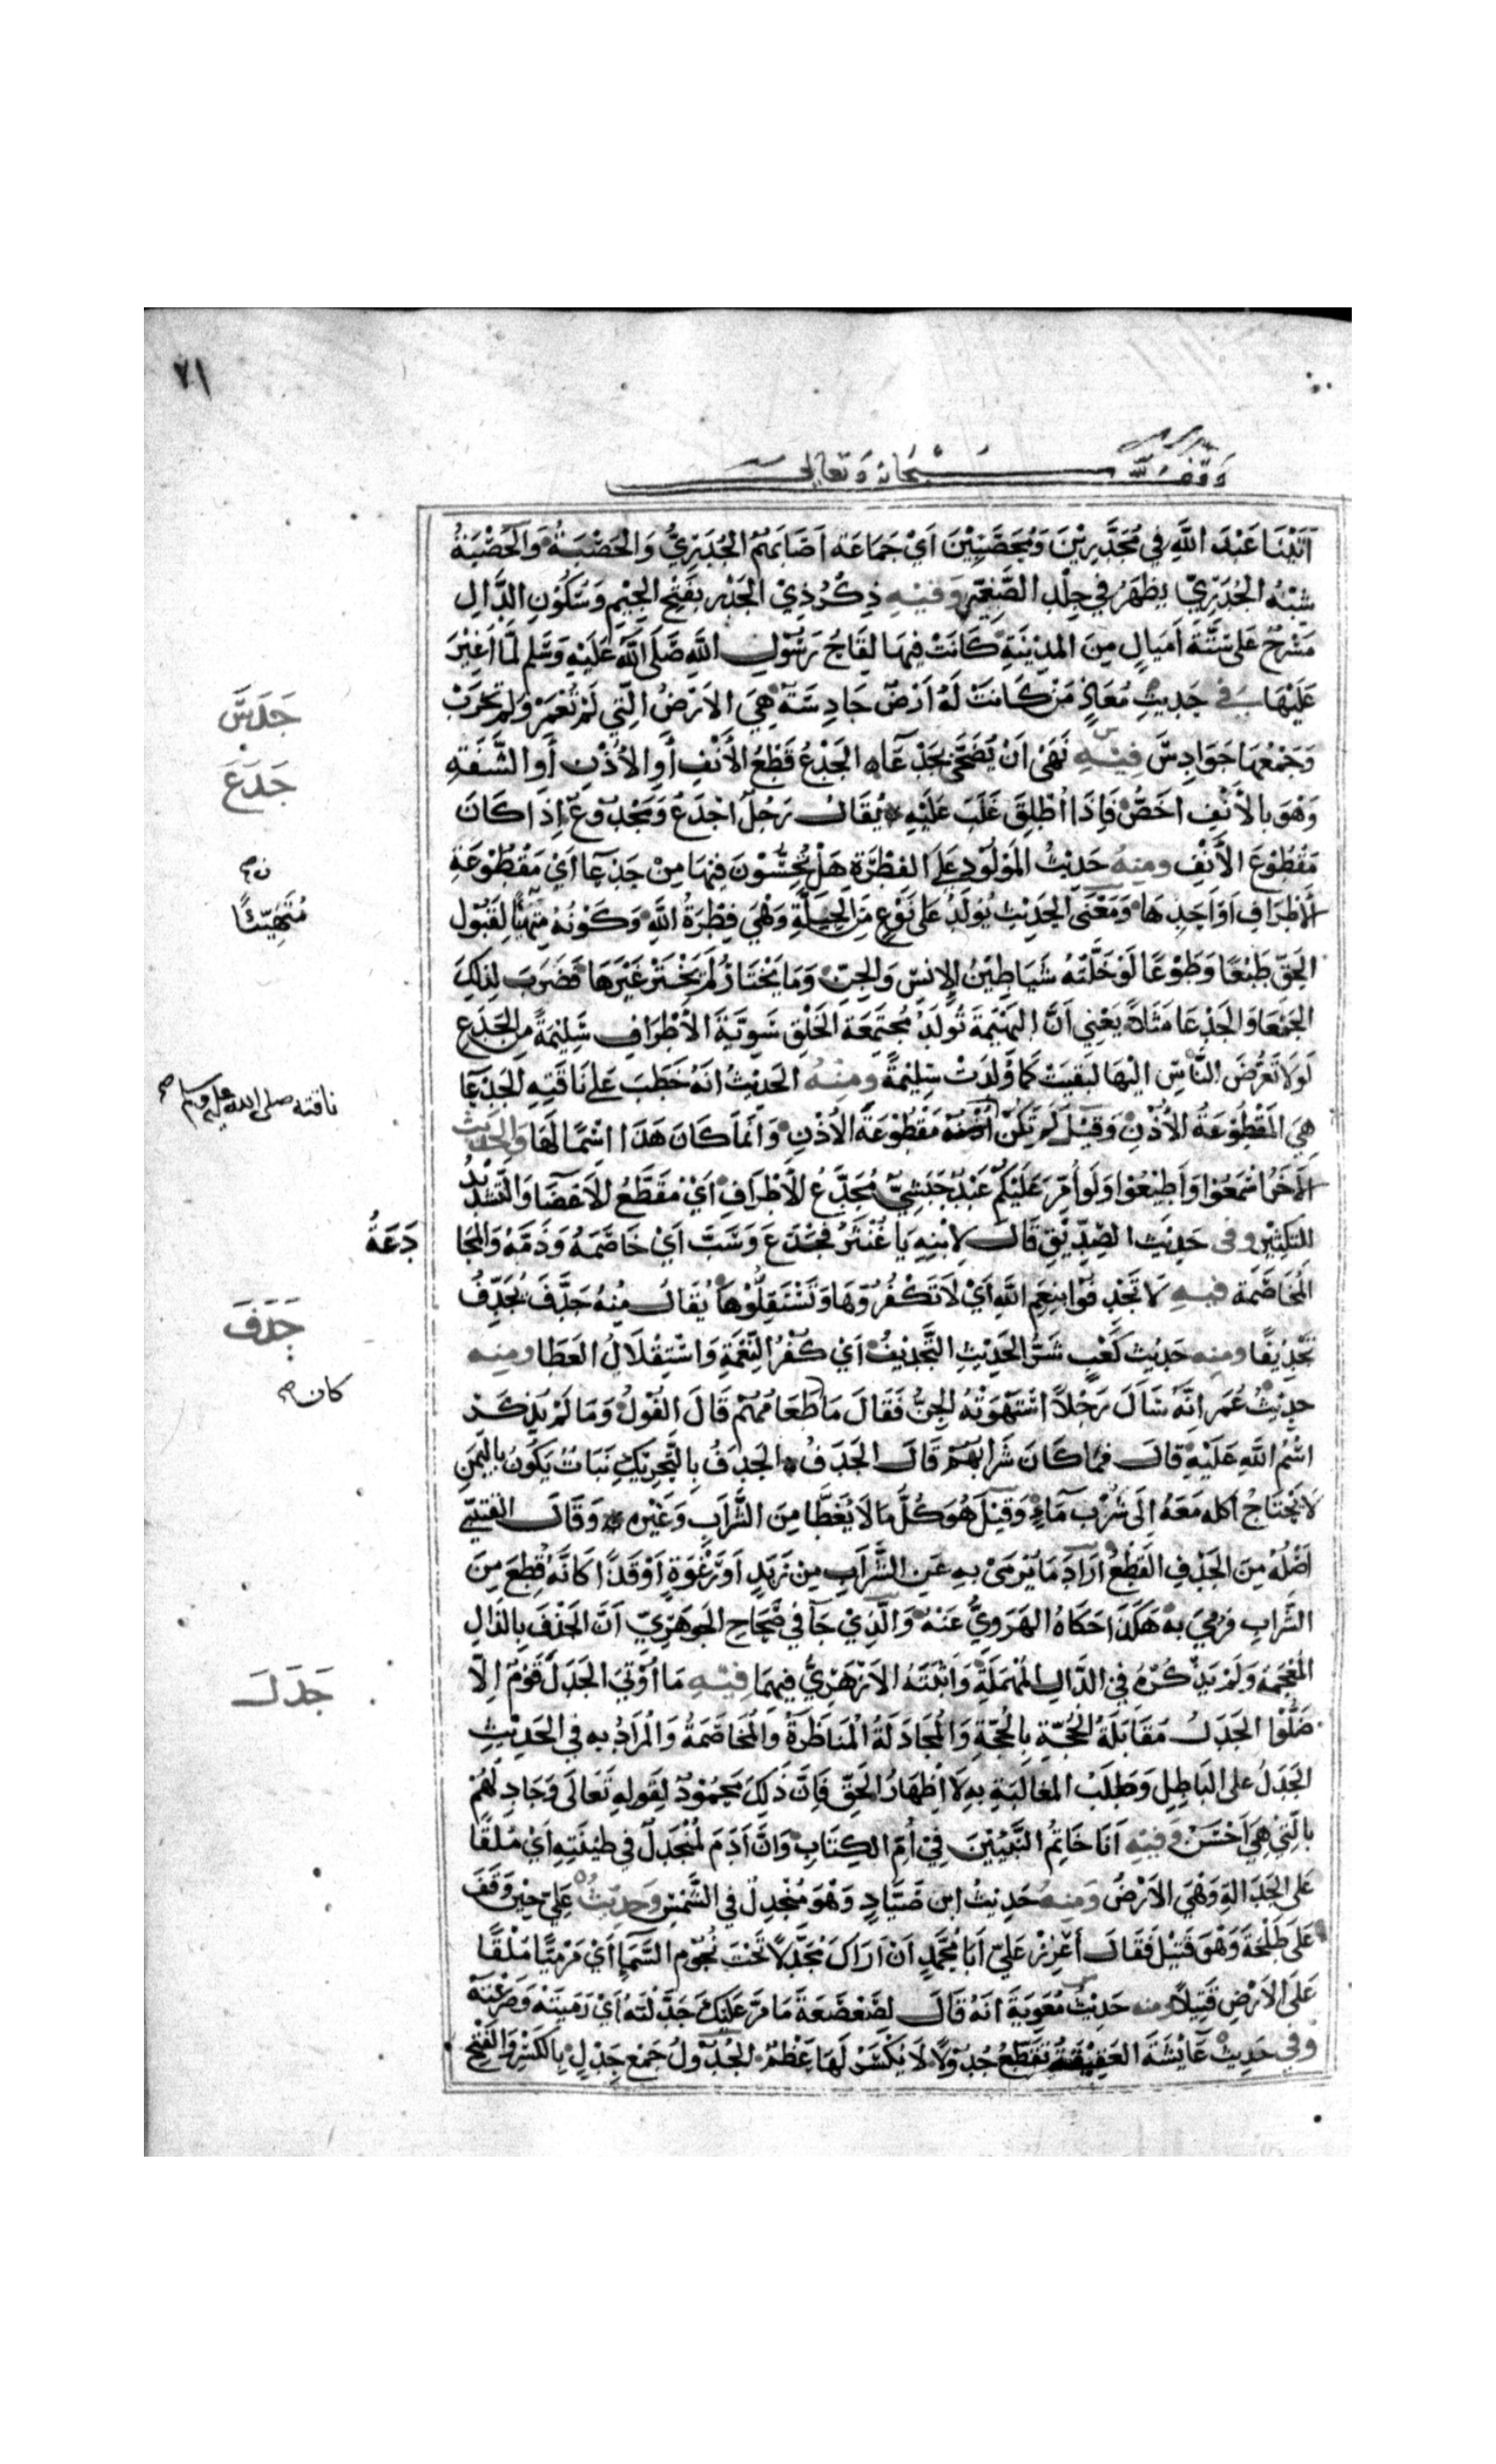 ٧١
وقف لله سبحانه وتعالى
اَتَيْنَا عَبْدَ اللَّهِ فِي مُجَدَّرِيْنَ وَمُحَصَّبِيْنَ اَيْ جَمَاعَة اَصَابَهُمُ الجُدَرِيُّ وَالحَصْبَةُ وَالحَصْبَةُ
شِبْهُ الجُدَرِيّ يظهَرُ في جِلْدِ الصَّغِيْرِ وَفيْهِ ذِكْرُ ذِيْ الجَدْرِ بِفَتْحِ الجِيْمِ وَسُكُوْنِ الدَّالِ
مَسْرَحٌ عَلى سِتَّةِ اَمْيَالٍ مِنَ المدِيْنَةِ كَانَتْ فِيهَا لِقَاحُ رَسُوْلِ اللَّهِ صَلَّى اللَّهُ عَلَيْهِ وَسَلَّم لَمَّا اُغِيْرَ
عَلَيْهَا في حَدِيثِ مُعَاذٍ مَنْ كَانَتْ لَهُ اَرْضٌ جَادِسَةٌ هِيَ الاَرْضُ الَّتِي لَمْ تُعْمَرْ وَلَمْ تُحْرَثْ
جَدَسَ
وَجَمْعُهَا جَوَادِسُ فِيْهِ نَهَى اَنْ يُضَحَّى بِجَدْعَاء الجَدْعُ قَطْعُ الأَنْفِ أَوِ الاُذُنِ أَوِ الشَّفَةِ
جَدَعَ
وَهْوَ بِالأَنْفِ اَخَصُّ فَاِذَا اُطْلِقَ غَلَبَ عَلَيْهِ يُقَالُ رَجُلٌ اَجْدَعُ وَمَجْدُوعٌ اِذَا كَانَ
مَقْطُوْعَ الأَنْفِ ومِنهُ حَدِيْثُ المَوْلُوْدِ عَلَى الفِطْرَةِ هَلْ تُحِسُّوْنَ فِيْهَا مِنْ جَدْعَا اَيْ مَقْطُوْعَةِ
الأَطْرَافِ اَوْ وَاحِدِهَا وَمَعْنَى الحَدِيْثِ يُوْلَدُ عَلى نَوْعٍ مِنَ الجِبِلَّةِ وَهْيَ فِطْرَةُ اللَّهِ وَكَوْنُهُ مُتَهَيِّئًا لِقَبُوْلِ
مُتَهَيِّئًا
الحَقّ طَبْعًا وَطَوْعًا لَوْ خَلَّتْهُ شَيَاطِيْنُ الاِنْسِ وَالجِنّ وَمَا يَخْتَارُ لَمْ يَخْتَرْ غَيْرَهَا فَضَرَبَ لِذلِكَ
الجَمْعَا وَالجَدْعَا مَثَلًا يَعْنِي اَنَّ البَهِيْمَةَ تُوْلَدُ مُجْتَمِعَةَ الخَلْقِ سَوِيَّةَ الأَطْرَافِ سَلِيْمَةً مِنَ الجَدْعِ
لَوْلَا تَعَرُّضُ النَّاسِ اِلَيْهَا لَبَقِيَتْ كَمَا وُلِدَتْ سَلِيْمَةً ومِنْهُ الحَدِيْثُ اَنَّهُ خَطَبَ عَلى نَاقَتِهِ الجَدْعَا
هِيَ المَقْطُوْعَةُ الأُذُنِ وَقِيْلَ لَمْ تَكُنْ مَقْطُوْعَةَ الأُذُنِ وَاِنَّمَا كَانَ هَذَا اسْمًا لَهَا وَالحَدِيْث
ناقته صلى الله عليه وسلم صح
الآخَر اسْمَعُوْا وَأَطِيْعُوْا وَلَو أُمِّرَ عَلَيْكُمْ عَبْدٌ حَبَشِيّ مُجَدَّعُ الأَطْرَافِ اَيْ مُقَطَّعُ الأَعْضَا وَالتَّشْدِيْدُ
لِلتَّكْثِيْرِ وفى حَدِيْثِ الصِّدِّيْقِ قَالَ لِابْنِهِ يَا غُنْثَرُ فَجَدَّعَ وَسَبَّ اَيْ خَاصَمَهُ وَذَمَّهُ وَالمُجَا
دَعَةُ
المُخَاصَمَة فيهِ لَا تُجَدِّفُوْا بِنِعَمِ اللَّهِ اَيْ لَا تَكْفُرُوْهَا وَتَسْتَقِلُّوْهَا يُقَالُ مِنْهُ جَدَّفَ يُجَدِّفُ
جَدَفَ
تَجْدِيْفًا ومنه حَدِيْثُ كَعْبٍ شَرُّ الحَدِيْثِ التَّجْدِيْفُ اَيْ كُفْرُ النِّعْمَةِ وَاسْتِقْلَالُ العَطَا ومنه
حَدِيْثُ عُمَر اَنَّهُ سَأَلَ رَجُلًا اسْتَهْوَتْهُ الجِنُّ فَقَالَ مَا طَعَامُهُمْ قَالَ الفُوْلُ وَمَا لَمْ يُذْكَرْ
كان صح
اسْمُ اللَّهِ عَلَيْهِ قَالَ فَمَا كَانَ شَرَابُهُمْ قَالَ الجَدَفُ الجَدَفُ بِالتَّحْرِيْكِ نَبَاتٌ يَكُوْنُ بِاليَمَنِ
لَا يَحْتَاجُ اكله مَعَهُ اِلَى شُرْبِ مَآءٍ وَقِيْلَ هُوَ كُلُّ مَا لَا يُغَطَّا مِنَ الشَّرَابِ وَغَيْرِهِ وَقَالَ القُتَيْبِي
اَصْلُهُ مِنَ الجَدْفِ القَطْعُ اَرَادَ مَا يُرْمَى بِهِ عَنِ الشَّرَابِ مِنْ زَبَدٍ اَوْ رَغْوَةٍ اَوْ قَذًا كَاَنَّهُ قُطِعَ مِنَ
الشَّرَابِ فَرُمِيَ بِهِ هَكَذَا حَكَاهُ الهَرَوِيُّ عَنْهُ وَالَّذِيْ جَآ في صَحَاحِ الجَوهَرِيّ اَنَّ الجَذَفَ بِالذَّالِ
المُعْجَمَة وَلَمْ يَذْكُرْهُ فِي الدَّالِ المُهْمَلَةِ وَاَثْبَتَهُ الاَزْهَرِيُّ فِيهِمَا فِيْهِ مَا اُوْتِيَ الجَدَلَ قَوْمٌ اِلَّا
جَدَلَ
ضَلُّوْا الجَدَلُ مُقَابَلَةُ الحُجَّةِ بِالحُجَّةِ وَالمُجَادَلَةُ المُنَاظَرَةُ وَالمُخَاصَمَةُ وَالمُرَادُ بِهِ فِي الحَدِيْثِ
الجَدَلُ عَلى البَاطِلِ وَطَلَبُ المغالَبَةِ بِهِ لَا اِظْهَارُ الحَقّ فَاِنَّ ذَلِكَ مَحْمُوْدٌ لِقَولِهِ تَعَالَى وَجَادِلْهُمْ
بِالَّتِي هِيَ اَحْسَنُ وَفِيْهِ اَنَا خَاتِمُ النَّبِيِّيْنَ فِيْ اُمّ الكِتَابِ وَاِنَّ آدَمَ لَمُنْجَدِلٌ في طِيْنَتِهِ اَيْ مُلْقًا
عَلى الجَدَالَةِ وَهْيَ الاَرْضُ وَمِنهُ حَدِيْثُ ابنِ صَيَّادٍ وَهْوَ مُنْجَدِلٌ في الشَّمْسِ وَحَدِيْثُ عَلِيّ حِيْنَ وَقَفَ
عَلَى طَلْحَةَ وَهْوَ قَتِيْلٌ فَقَالَ اَعْزِزْ عَلَيّ اَبَا مُحَمَّدٍ اَنْ اَرَاكَ مُجَدَّلًا تَحْتَ نُجُوْمِ السَّمَآءِ اَيْ مَرْمِيًّا مُلْقًا
عَلَى الاَرْضِ قَتِيلًا ومنه حَدِيْثُ مُعَوِيَةَ اَنَّهُ قَالَ لِصَعْصَعَةَ مَا مَرَّ عَلَيْكَ جَدَّلْتَهُ اَيْ رَمَيْتَهُ وَصَرَعْتَهُ
وَفي حَدِيْثِ عَآيْشَةَ العَقِيْقَةُ تُقَطَّعُ جُدُوْلًا لَا يُكْسَرُ لَهَا عَظْمٌ الجُدُوْلُ جَمْعُ جِدْلٍ بِالكَسْرِ وَالفَتْحِ